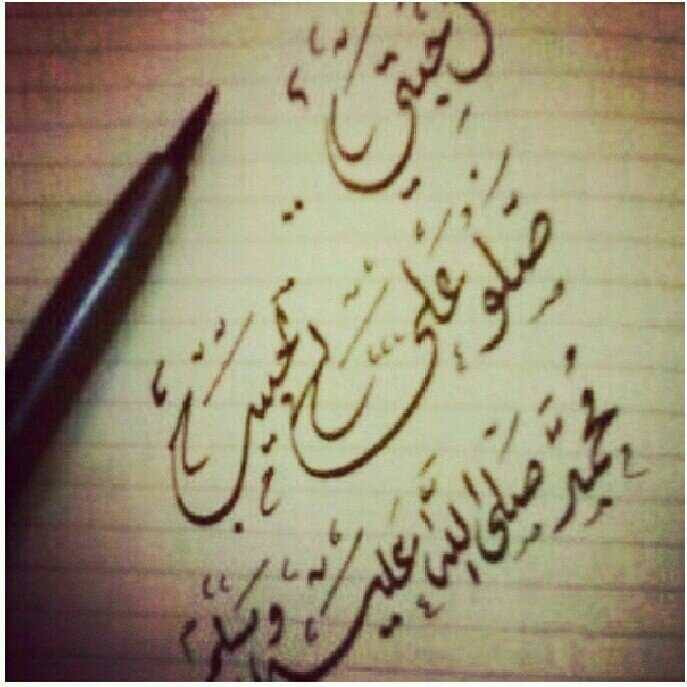 أحبتي
صلو على الحبيب
محمد صلى الله عليه وسلم